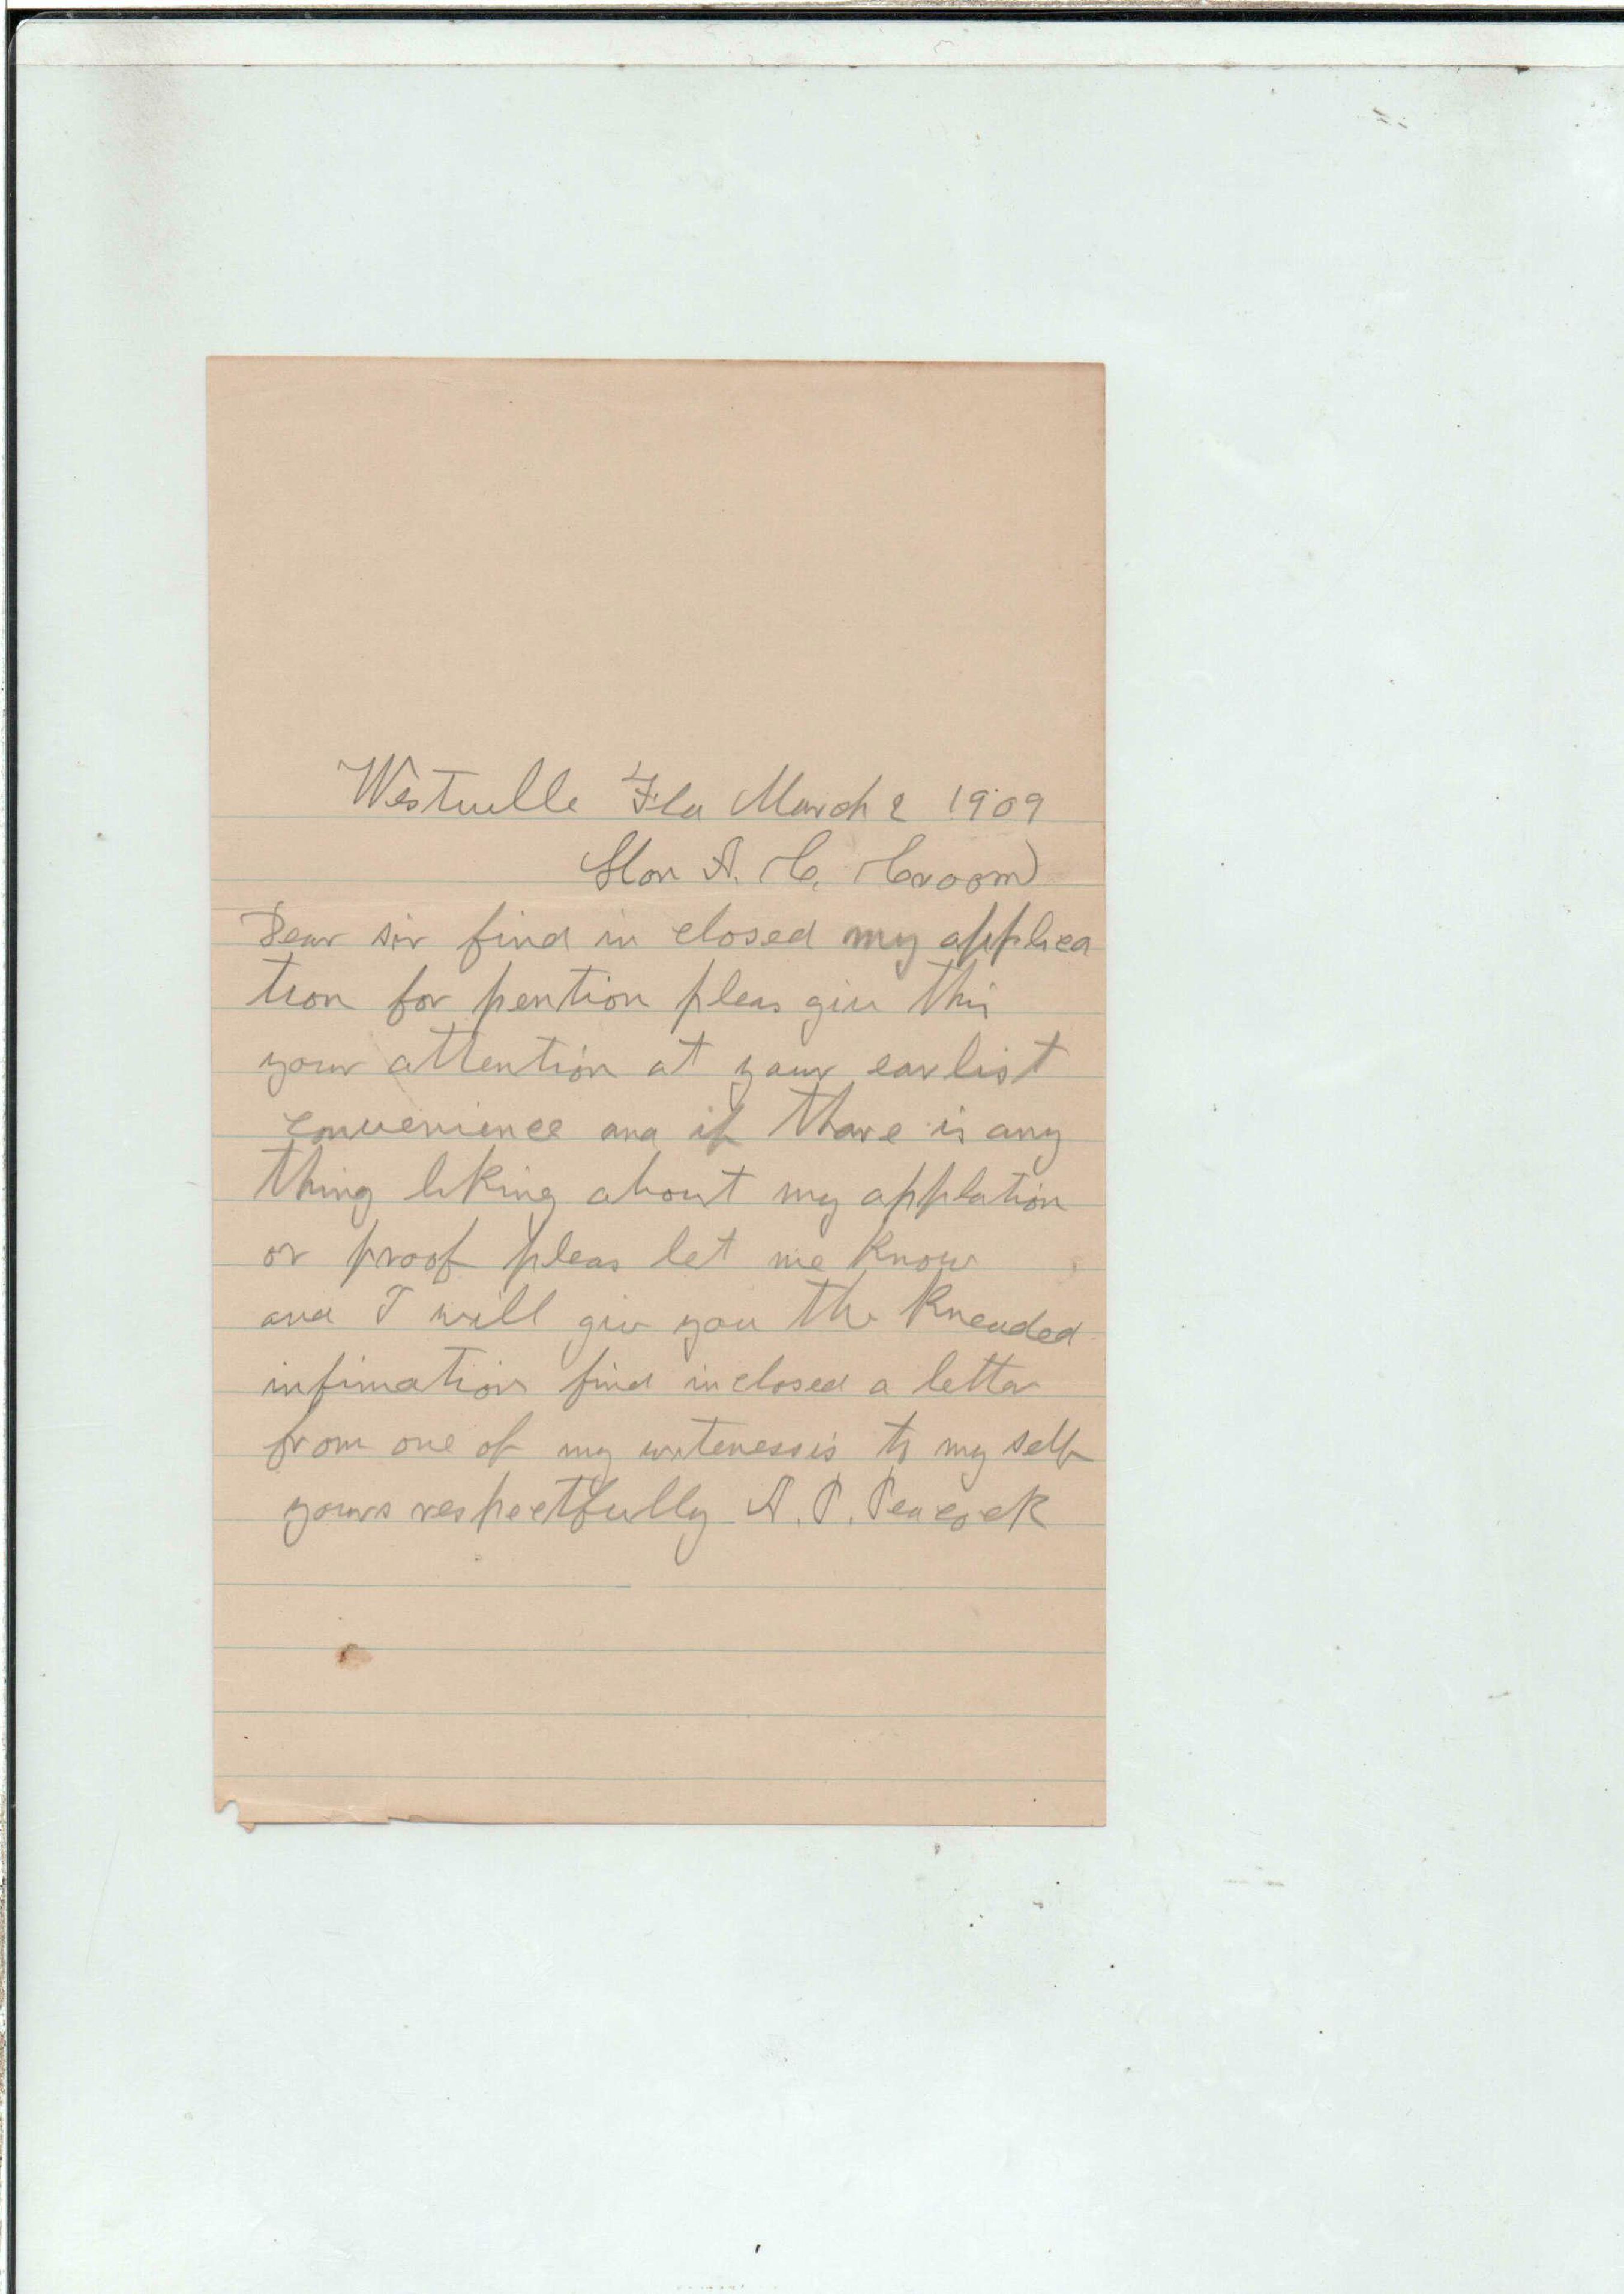 Westville Fla March 2 1909
Hon A. C. Croom
Dear sir find in closed my applica
tion for pention pleas giv this
your attention at your earlist
convenience and if thare is any
thing liking about my applation
or proof pleas let me know
and I will giv you the kneaded
infimation find inclosed a letter
from one of my witenessis to my self
yours respectfully A. P. Peacock